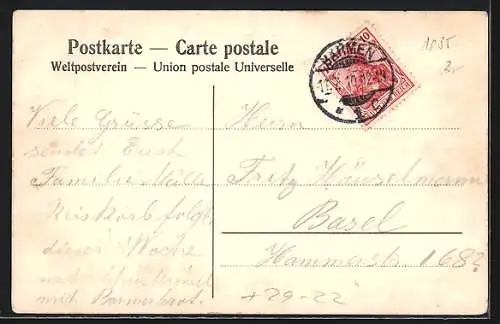 Postkarte — Carte postale
Weltpostverein — Union postale Universelle
BARMEN
1035
Viele Grüsse
sendet Euch
Familie
Reiskorb folgt
diese Woche
mit Barmerbrot.
Herrn
Fritz Häuselmann
Basel
Hammerstr. 168
+29-22